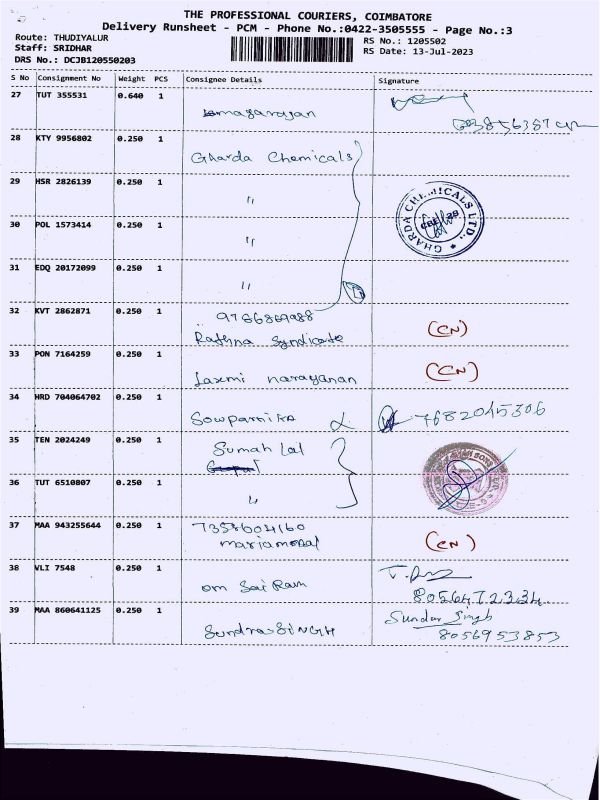 THE PROFESSIONAL COURIERS, COIMBATORE
Delivery Runsheet - PCM - Phone No.:0422-3505555 - Page No.:3
Route: THUDIYALUR
RS No.: 1205502
Staff: SRIDHAR
RS Date: 13-Jul-2023
DRS No.: DCJB120550203
S No Consignment No Weight PCS Consignee Details Signature
27 TUT 355531 0.640 1
28 KTY 9956802 0.250 1 Gharda Chemicals
29 HSR 2826139 0.250 1 "
GHARDA CHEMICALS LTD.
CBE
30 POL 1573414 0.250 1 "
31 EDQ 20172099 0.250 1 "
32 KVT 2862871 0.250 1 9786869988
Rathna Syndicate (CN)
33 PON 7164259 0.250 1 Laxmi narayanan (CN)
34 HRD 704064702 0.250 1 Sowparnika 7682045306
35 TEN 2024249 0.250 1 Sumah Lal
36 TUT 6510807 0.250 1 "
37 MAA 943255644 0.250 1 7358604160
(CN)
38 VLI 7548 0.250 1 om Sai Ram
8056472334
39 MAA 860641125 0.250 1 SundraSINGH Sundar Singh
8056953853